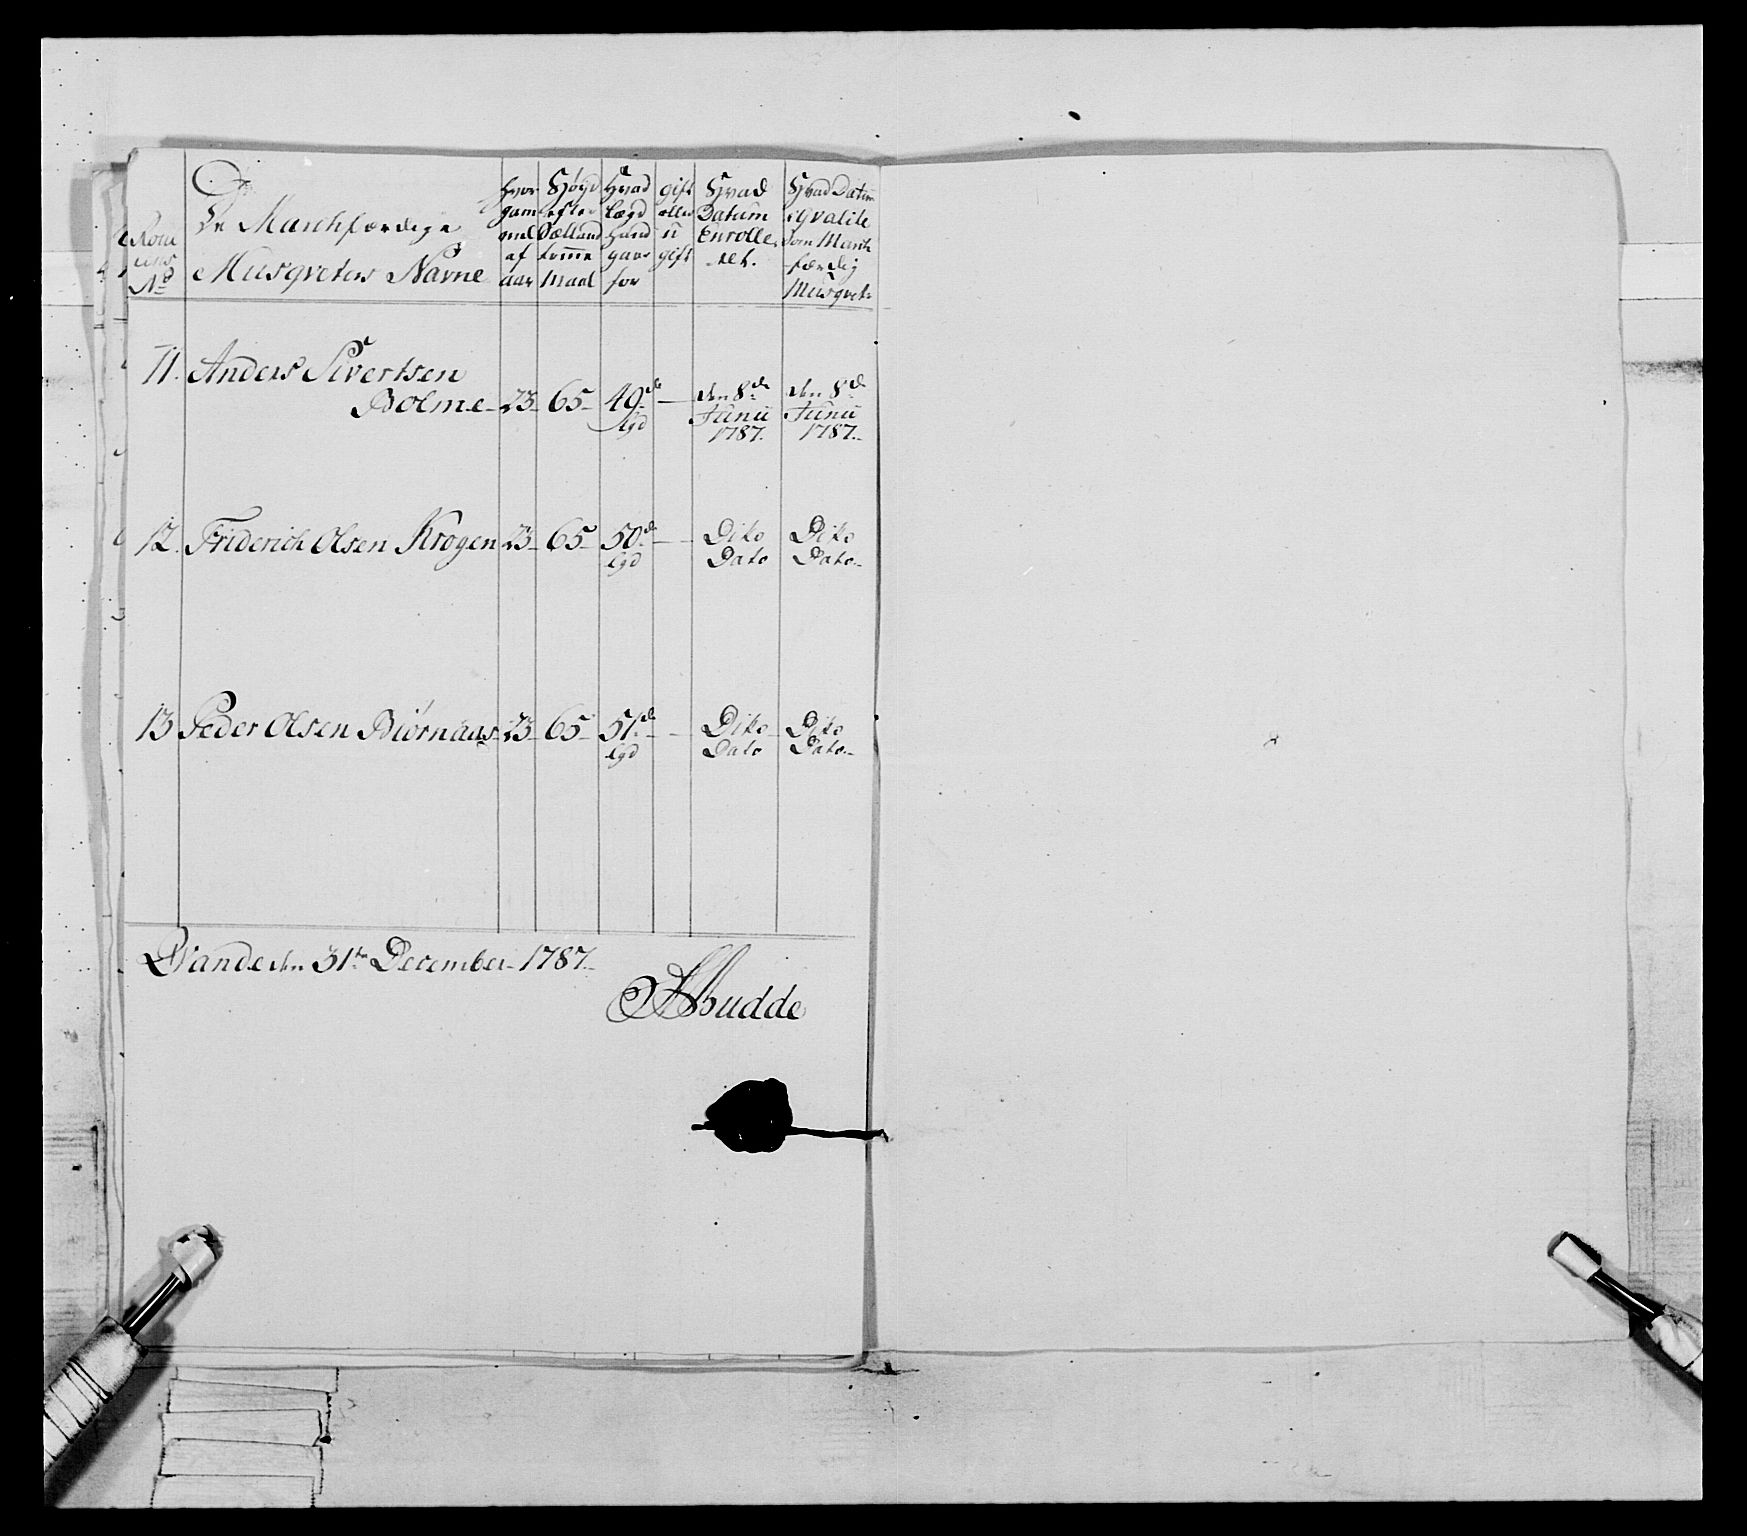 No
De Marchfærdige
Musqveters Navne
hvor gam mel af aar
Høyd efter Sælland komme Maal
Hvad Lægd hand gaar for
gift eller u gift
Hvad Datum Enrolle ret.
Hvad Datum i Qvalite som March færdig Musqvet
11. Anders Sivertsen
Bolme - 23 - 65 - 49de lgd - den 8de Junii 1787. den 8de Junii 1787.
12. Friderich Olsen Krogen 23 - 65 - 50de lgd - Dito Dato Dito Dato
13 Peder Olsen Biørnaas 23 - 65 - 51de lgd - Dito Dato Dito Dato
den 31te December 1787.
Budde